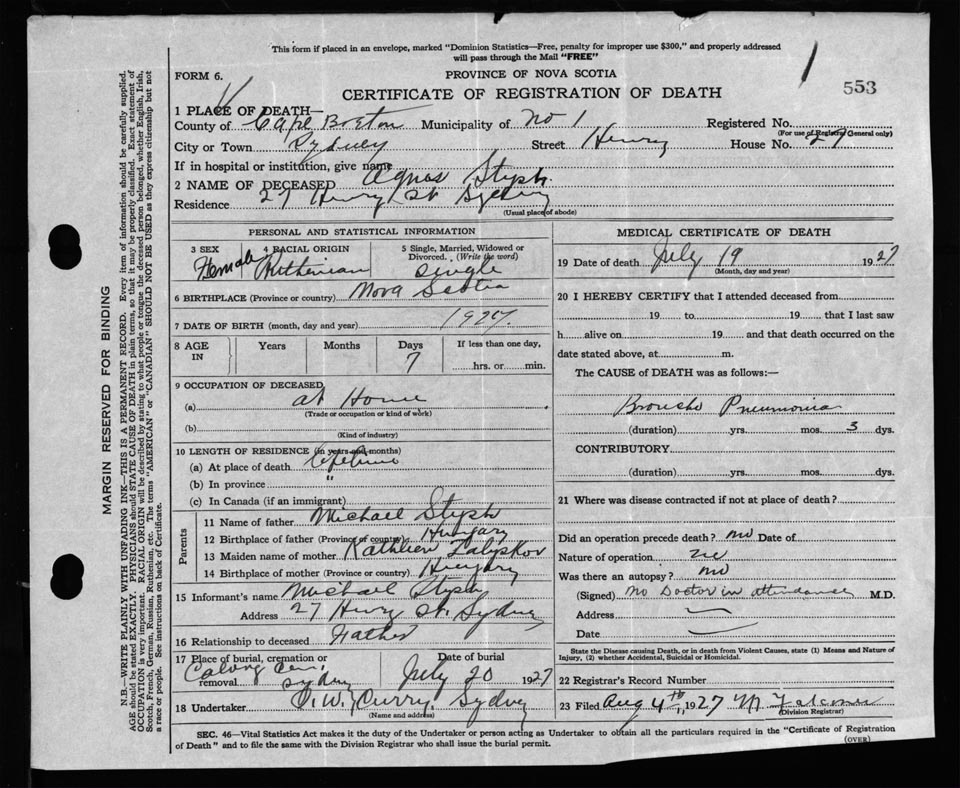 This form if placed in an envelope, marked "Dominion Statistics—Free, penalty for improper use $300," and properly addressed
will pass through the Mail "FREE"
1
553
FORM 6.
PROVINCE OF NOVA SCOTIA
CERTIFICATE OF REGISTRATION OF DEATH
1 PLACE OF DEATH—
County of Cape Breton Municipality of No 1 Registered No.
(For use of Registry General only)
City or Town Sydney Street Henry House No. 27
If in hospital or institution, give name
2 NAME OF DECEASED Agnes Styph.
Residence 27 Henry St Sydney
(Usual place of abode)
PERSONAL AND STATISTICAL INFORMATION
3 SEX 4 RACIAL ORIGIN 5 Single, Married, Widowed or
Divorced. (Write the word)
Female Ruthenian Single
6 BIRTHPLACE (Province or country) Nova Scotia
7 DATE OF BIRTH (month, day and year) 1927.
8 AGE IN Years Months Days If less than one day,
7 hrs. or min.
9 OCCUPATION OF DECEASED
(a) at Home
(Trade or occupation or kind of work)
(b)
(Kind of industry)
10 LENGTH OF RESIDENCE (in years and months)
(a) At place of death Lifetime
(b) In province "
(c) In Canada (if an immigrant)
Parents
11 Name of father Michael Styph
12 Birthplace of father (Province or country) Hungary
13 Maiden name of mother Kathleen
14 Birthplace of mother (Province or country) Hungary
15 Informant's name Michael Styph
Address 27 Henry St. Sydney
16 Relationship to deceased Father
17 Place of burial, cremation or removal Date of burial
Sydney July 20 1927
18 Undertaker Curry Sydney
(Name and address)
MEDICAL CERTIFICATE OF DEATH
19 Date of death July 19 1927
(Month, day and year)
20 I HEREBY CERTIFY that I attended deceased from
19 to 19 that I last saw
h alive on 19 and that death occurred on the
date stated above, at m.
The CAUSE of DEATH was as follows:—
Broncho Pneumonia
(duration) yrs. mos. 3 dys.
CONTRIBUTORY
(duration) yrs. mos. dys.
21 Where was disease contracted if not at place of death?
Did an operation precede death? no Date of
Nature of operation
Was there an autopsy? no
(Signed) No Doctor in attendance M.D.
Address
Date
State the Disease causing Death, or in death from Violent Causes, state (1) Means and Nature of
Injury, (2) whether Accidental, Suicidal or Homicidal.
22 Registrar's Record Number
23 Filed Aug 4th, 1927
(Division Registrar)
SEC. 46—Vital Statistics Act makes it the duty of the Undertaker or person acting as Undertaker to obtain all the particulars required in the "Certificate of Registration
of Death" and to file the same with the Division Registrar who shall issue the burial permit.
(OVER)
MARGIN RESERVED FOR BINDING
N.B.—WRITE PLAINLY WITH UNFADING INK—THIS IS A PERMANENT RECORD. Every item of information should be carefully supplied.
AGE should be stated EXACTLY. PHYSICIANS should STATE CAUSE OF DEATH in plain terms, so that it may be properly classified. Exact statement of
OCCUPATION is very important. RACIAL ORIGIN will be described by stating to what people or tongue the deceased person belonged, whether English, Irish,
Scotch, French, German, Russian, Ruthenian, etc. The terms "AMERICAN" or "CANADIAN" SHOULD NOT BE USED as they express citizenship but not
a race or people. See instructions on back of Certificate.